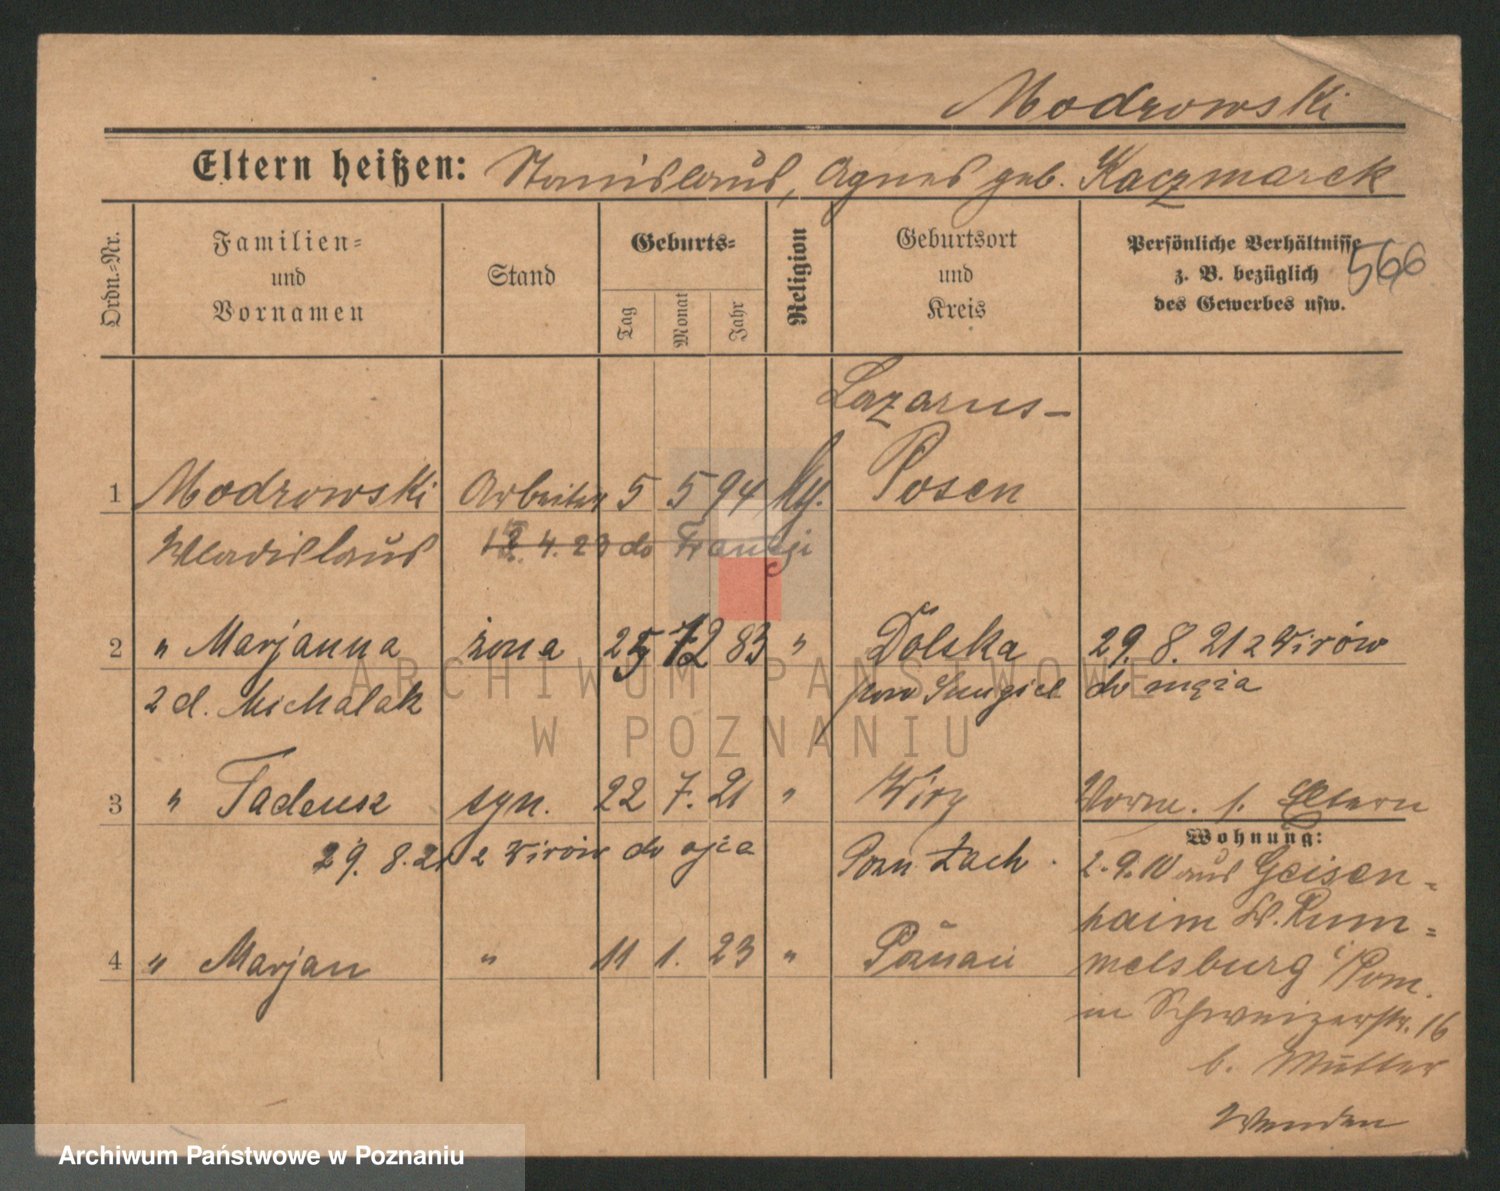 Modrowski
Eltern heißen: Stanislaus, Agnes geb. Kaczmarek
Ordn.=Nr.
Familien=
und
Vornamen
Stand
Geburts=
Tag
Monat
Jahr
Religion
Geburtsort
und
Kreis
Persönliche Verhältnisse
z. B. bezüglich
des Gewerbes usw.
566
Lazarus-
1 Modrowski Arbeiter 5 5 94 Posen
Wladislaus 4. 23 do Francji
2 " Marjanna żona 25 12 83 " Dolska 29. 8. 21 z Wirów
2 d. Michalak pow do męża
3 " Tadeusz syn. 22 7. 21 " Wiry Vorm. s. Eltern
Wohnung:
29. 8. 21 z Wirów do ojca Pozn. Zach.
2. 9. 10 aus Geisen=
4 " Marjan " 11 1. 23 " Poznań
haim Kr. Rum=
melsburg i/Pom.
in Schweizerstr. 16
b. Mutter
Wenden
ARCHIWUM PAŃSTWOWE
W POZNANIU
Archiwum Państwowe w Poznaniu